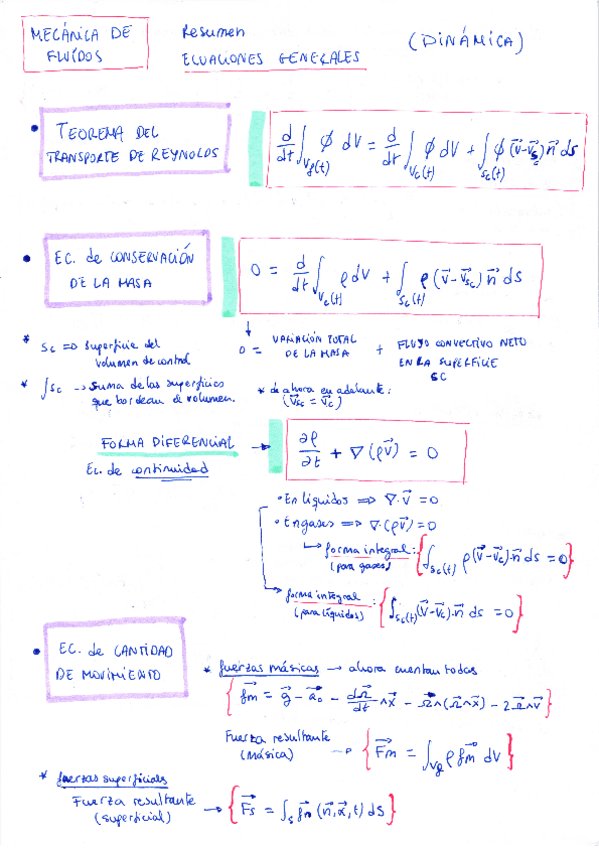 MECÁNICA DE FLUÍDOS
Resumen
ECUACIONES GENERALES
(DINÁMICA)
• TEOREMA DEL
TRANSPORTE DE REYNOLDS
d/dt ∫_{V_f(t)} ϕ dV = d/dt ∫_{V_c(t)} ϕ dV + ∫_{S_c(t)} ϕ (v⃗-v⃗_c) n⃗ ds
• EC. de CONSERVACIÓN
DE LA MASA
0 = d/dt ∫_{V_c(t)} ρ dV + ∫_{S_c(t)} ρ (v⃗ - v⃗_{sc}) n⃗ ds
↓
0 = VARIACIÓN TOTAL DE LA MASA + FLUJO CONVECTIVO NETO EN LA SUPERFICIE SC
* Sc => Superficie del
volumen de control
* ∫sc → suma de las superficies
que bordean el volumen.
* de ahora en adelante:
(v⃗_{sc} = v⃗_c)
FORMA DIFERENCIAL →
Ec. de continuidad
∂ρ/∂t + ∇(ρv⃗) = 0
• En líquidos => ∇·v⃗ = 0
• En gases => ∇·(ρv⃗) = 0
↳ forma integral:
(para gases)
{∫_{S_c(t)} ρ(v⃗-v⃗_c)·n⃗ ds = 0}
→ forma integral :
(para líquidos)
{∫_{S_c(t)} (v⃗-v⃗_c)·n⃗ ds = 0}
• EC. de CANTIDAD
DE MOVIMIENTO
* fuerzas másicas → ahora cuentan todas
{f⃗m = g⃗ - a⃗₀ - dΩ⃗/dt ∧ x⃗ - Ω⃗∧(Ω⃗∧x⃗) - 2Ω⃗∧v⃗}
Fuerza resultante
(másica)
→ {F⃗m = ∫_{Vf} ρ f⃗m dV}
* fuerzas superficiales
Fuerza resultante
(superficial)
→ {F⃗s = ∫_s f⃗n (n⃗, x⃗, t) dS}